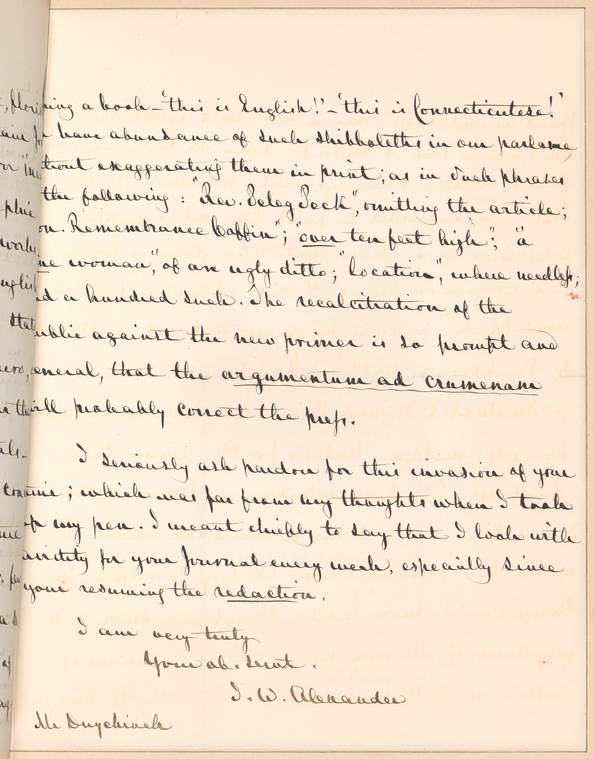 ning a book—'this is English!'—'this is Connecticutese!'
have abundance of such shibboleths in our parlance,
thout exaggerating them in print; as in such phrases
the following: "Rev. Peleg Peck", omitting the article;
on. Remembrance Coffin"; "over ten feet high"; "a
ne woman", of an ugly ditto; "location", where needless;
d a hundred such. The recalcitration of the
ublic against the new primer is so prompt and
eneral, that the argumentum ad crumenam
ill probably correct the press.
I seriously ask pardon for this invasion of your
time; which was far from my thoughts when I took
up my pen. I meant chiefly to say that I look with
avidity for your Journal every week, especially since
your resuming the redaction.
I am very truly
Your ob. servt.
J. W. Alexander
Mr Duyckinck